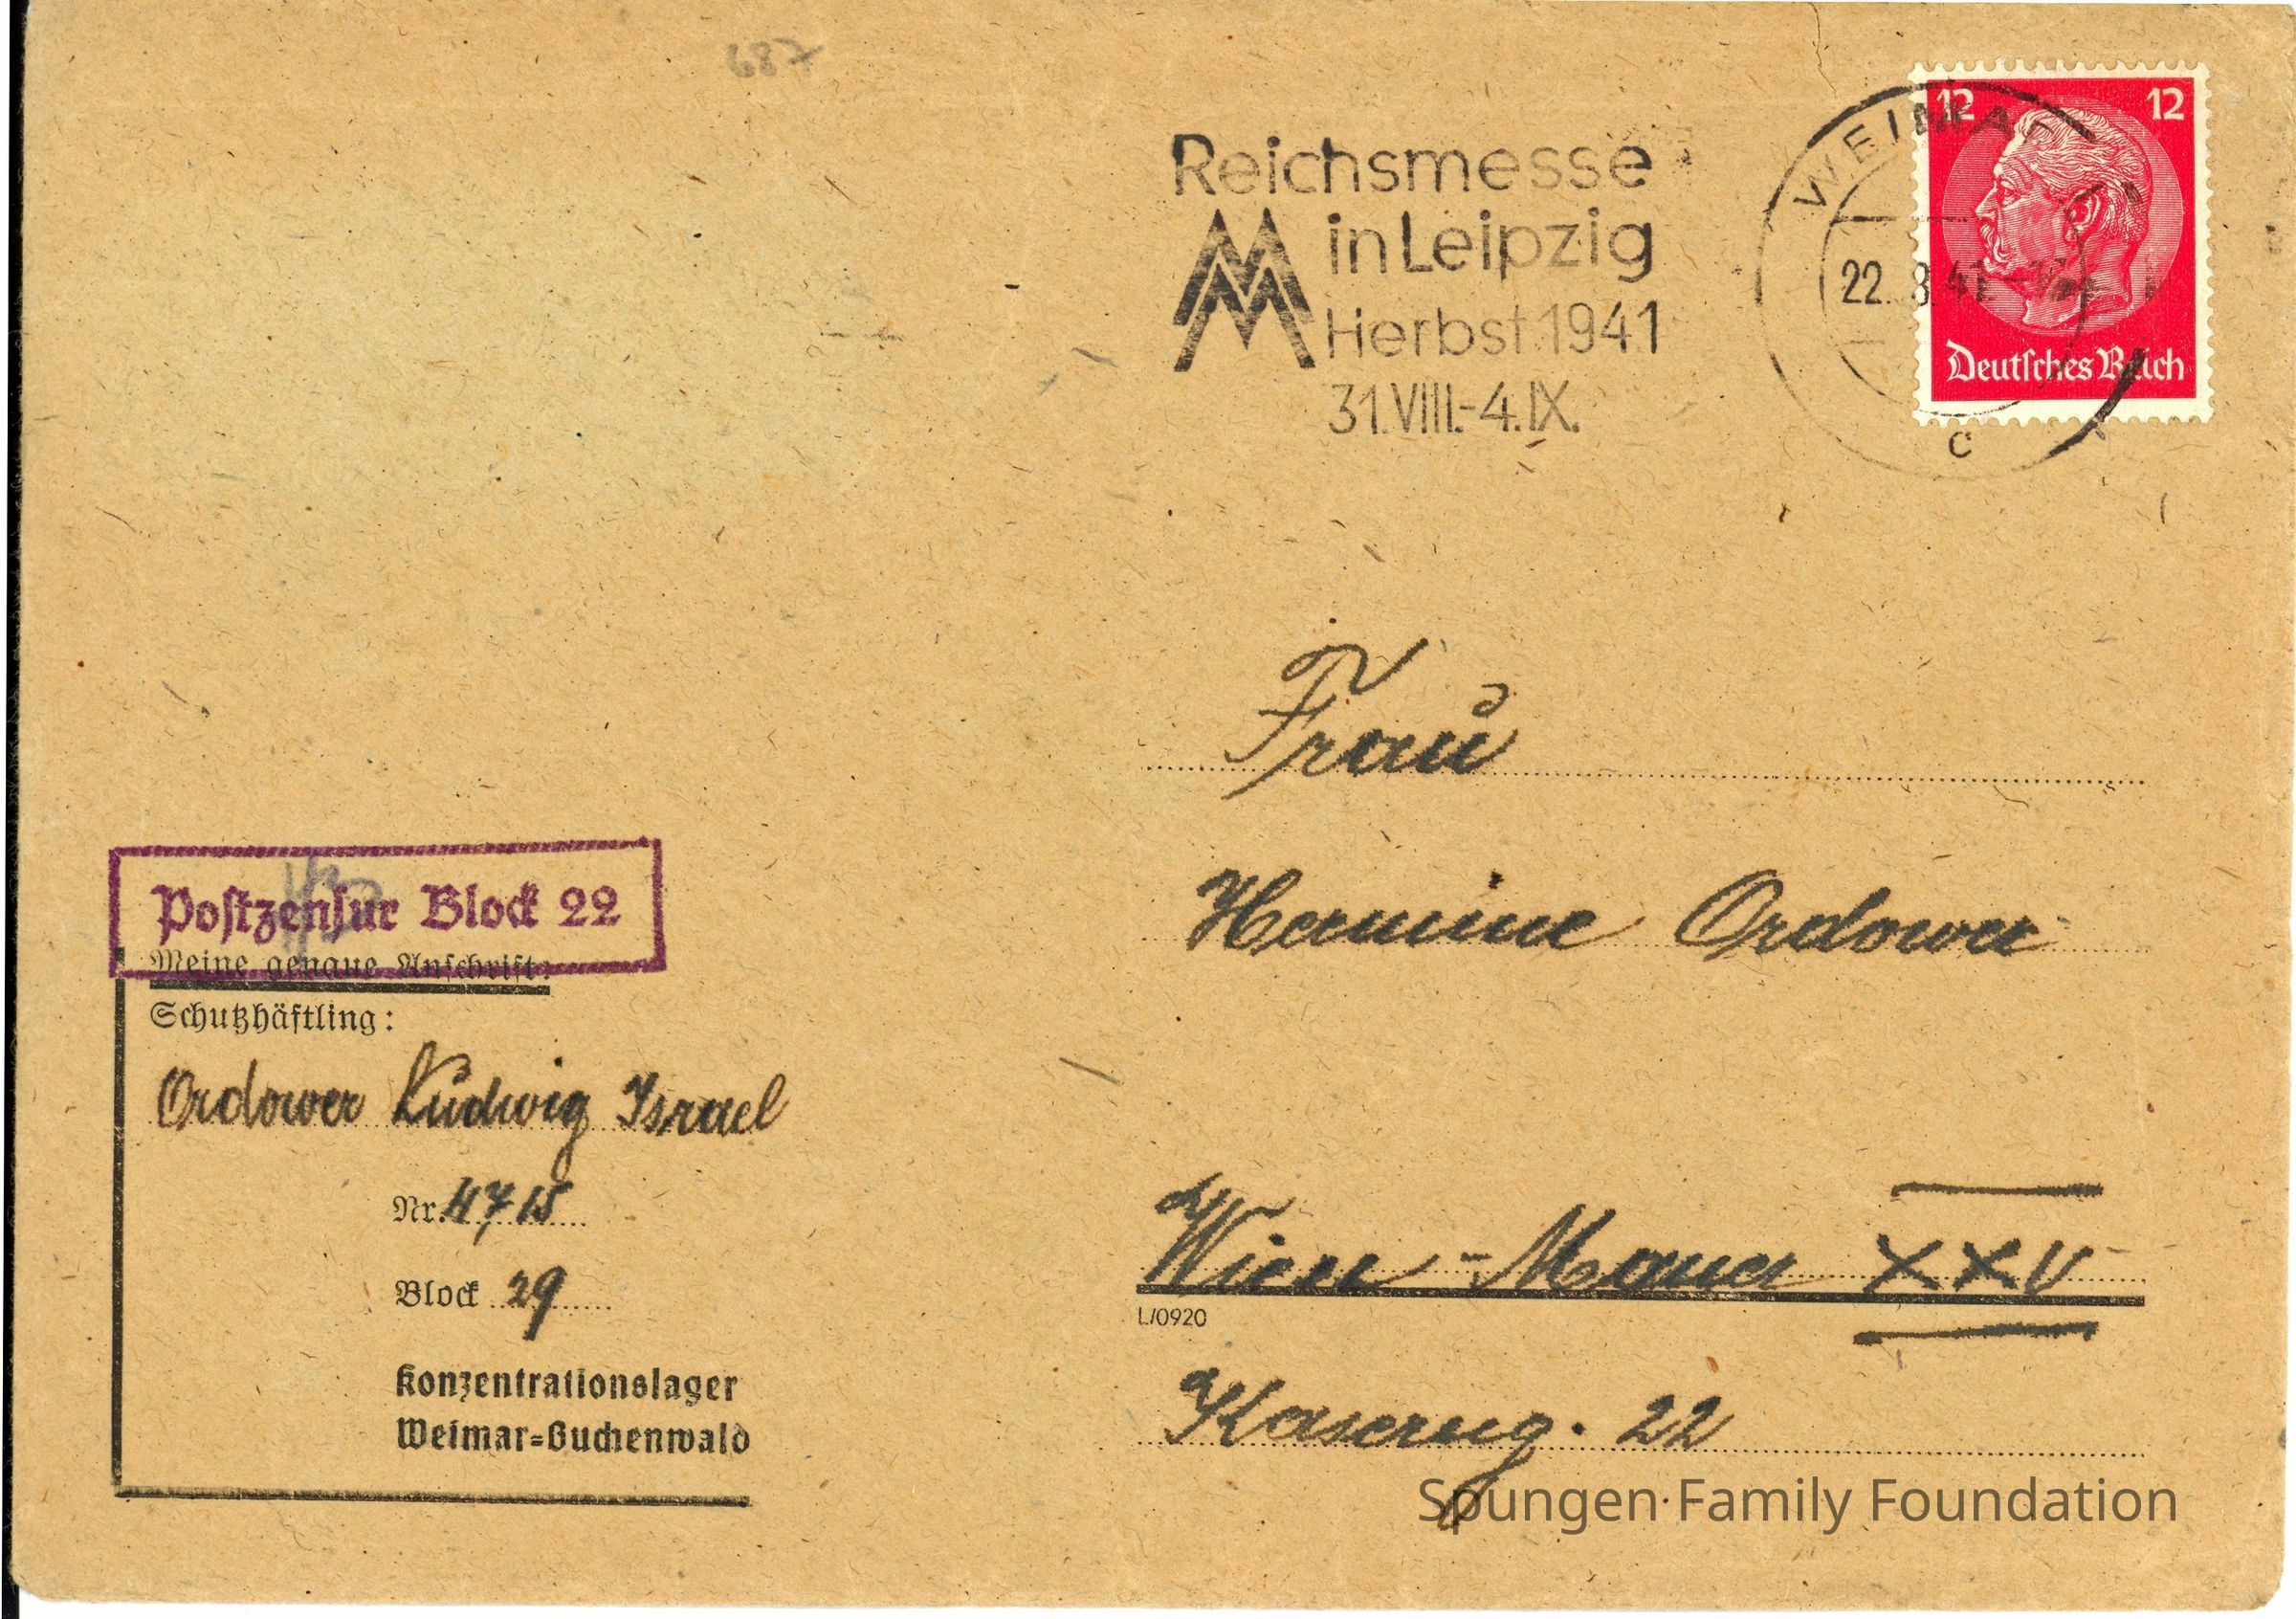 687
Reichsmesse
in Leipzig
Herbst 1941
31.VIII.-4.IX.
WEIMAR
22.8.41
c
12 12
Deutsches Reich
Frau
Hermine Ordower
Wien - Mauer XXV
L/0920
Kaserng. 22
Postzensur Block 22
Meine genaue Anschrift:
Schutzhäftling:
Ordower Ludwig Israel
Nr. 4715
Block 29
Konzentrationslager
Weimar=Buchenwald
Spungen Family Foundation